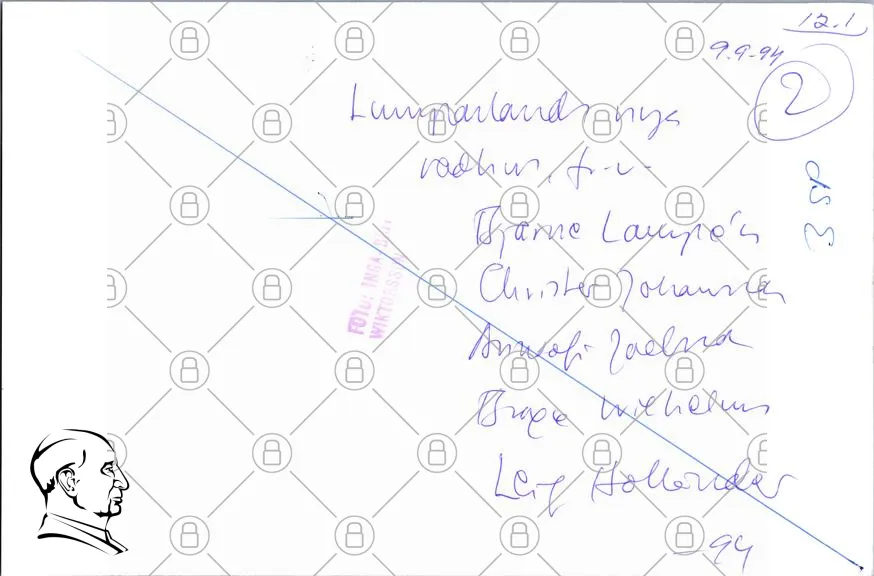 12.1
9.9-94
2
Lumparlands nya
rådhus, fr. v.
3 sp
Bjarne Lampén
Christer Johansson
FOTO: INGA-BRITT
WIKTORSSON
Brage Wilhelms
Leif Hollender
-94